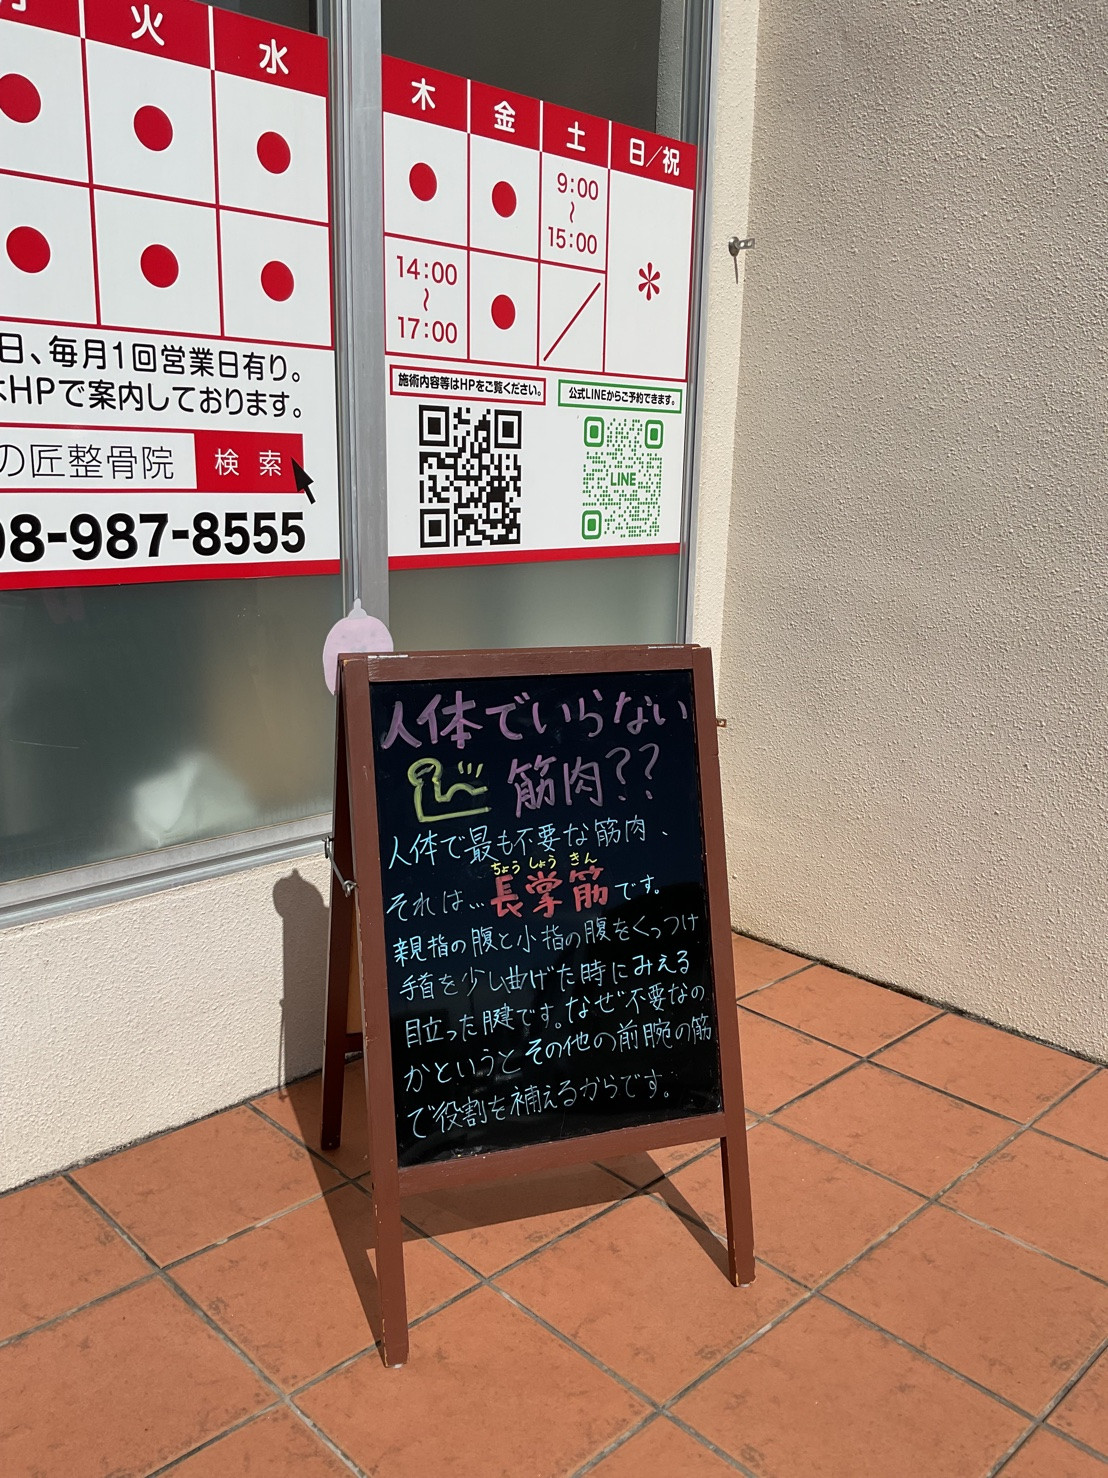 火
水
木
金
土
日/祝
9:00
~
15:00
14:00
~
17:00
日、毎月1回営業日有り。
はHPで案内しております。
の匠整骨院
検索
98-987-8555
施術内容等はHPをご覧ください。
公式LINEからご予約できます。
LINE
人体でいらない
筋肉??
人体で最も不要な筋肉、
ちょう しょう きん
それは…長掌筋です。
親指の腹と小指の腹をくっつけ
手首を少し曲げた時にみえる
目立った腱です。なぜ不要なの
かというとその他の前腕の筋
で役割を補えるからです。